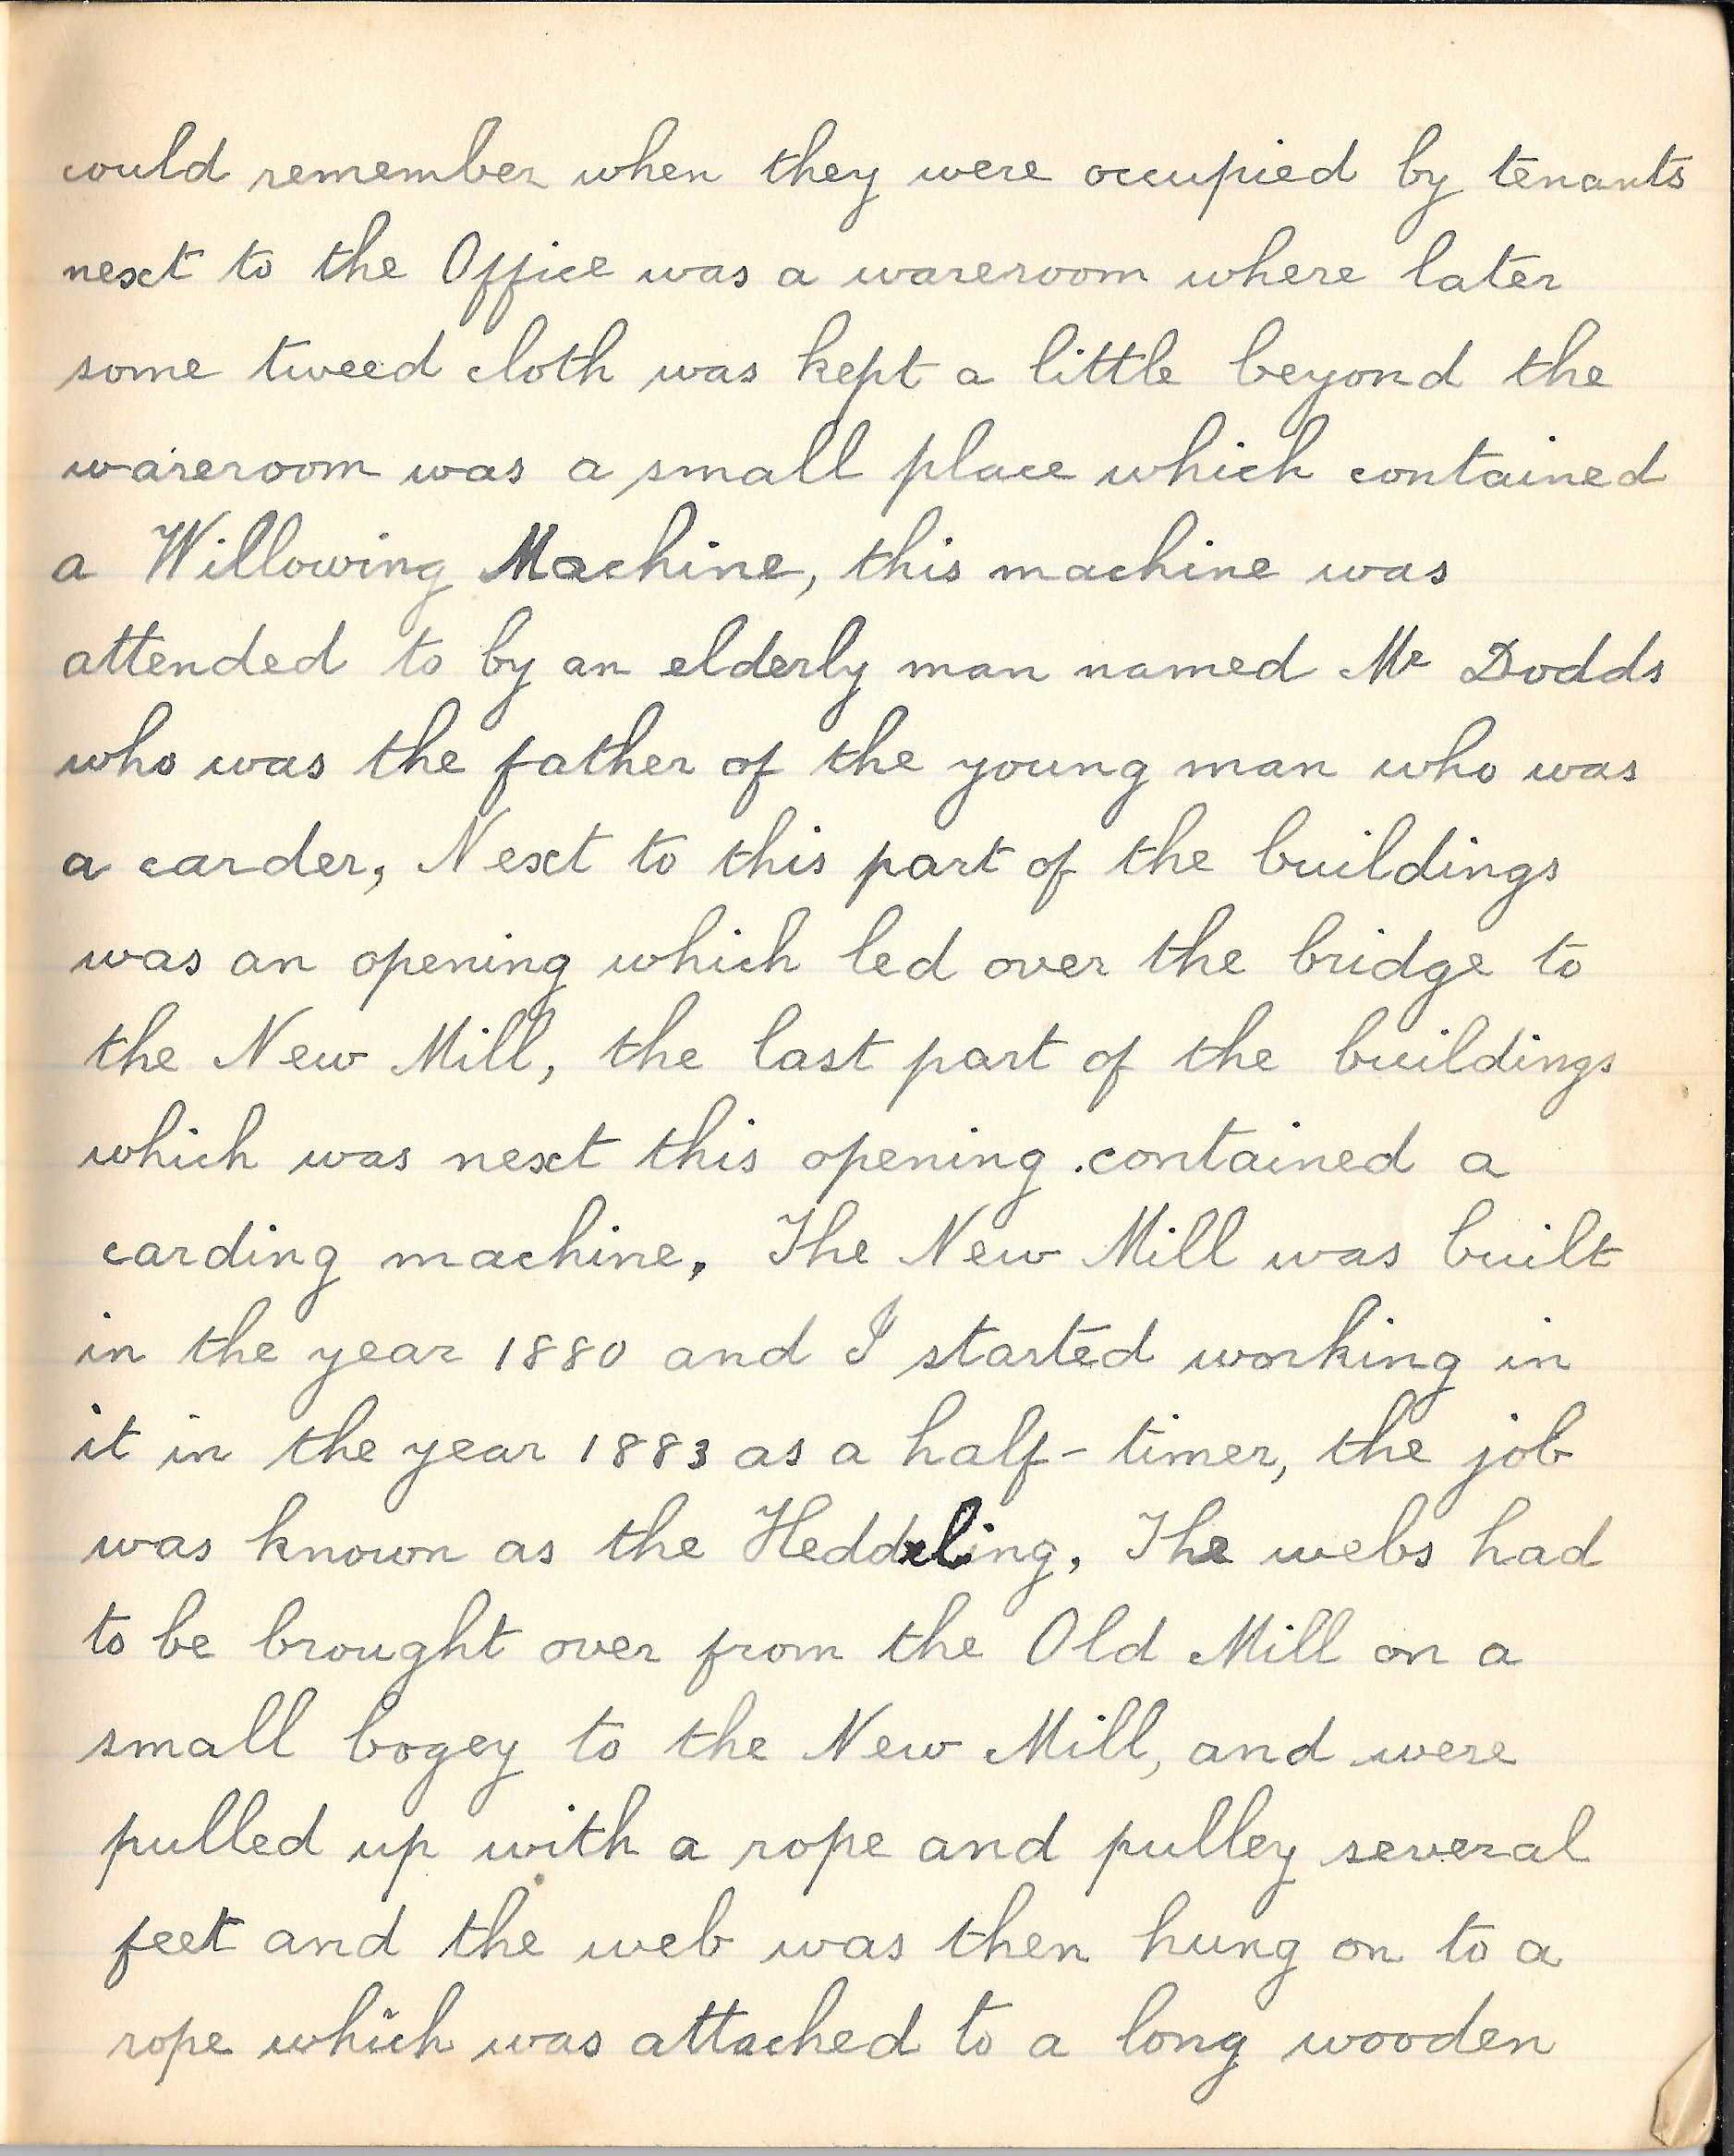 could remember when they were occupied by tenants
next to the Office was a wareroom where later
some tweed cloth was kept a little beyond the
wareroom was a small place which contained
a Willowing Machine, this machine was
attended to by an elderly man named Mr Dodds
who was the father of the young man who was
a carder, Next to this part of the buildings
was an opening which led over the bridge to
the New Mill, the last part of the buildings
which was next this opening .contained a
carding machine. The New Mill was built
in the year 1880 and I started working in
it in the year 1883 as a half-timer, the job
was known as the Heddeling, The webs had
to be brought over from the Old Mill on a
small bogey to the New Mill, and were
pulled up with a rope and pulley several
feet and the web was then hung on to a
rope which was attached to a long wooden